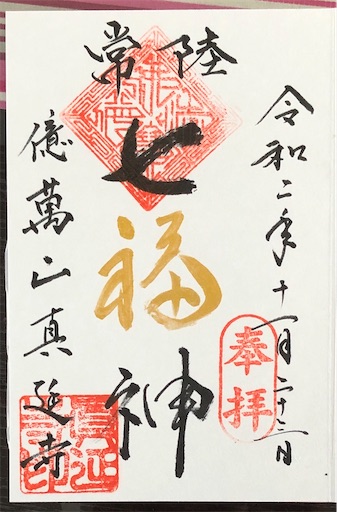 令和二年十一月二十三日
奉拝
常陸
七福神
億萬山真延寺
真延寺印